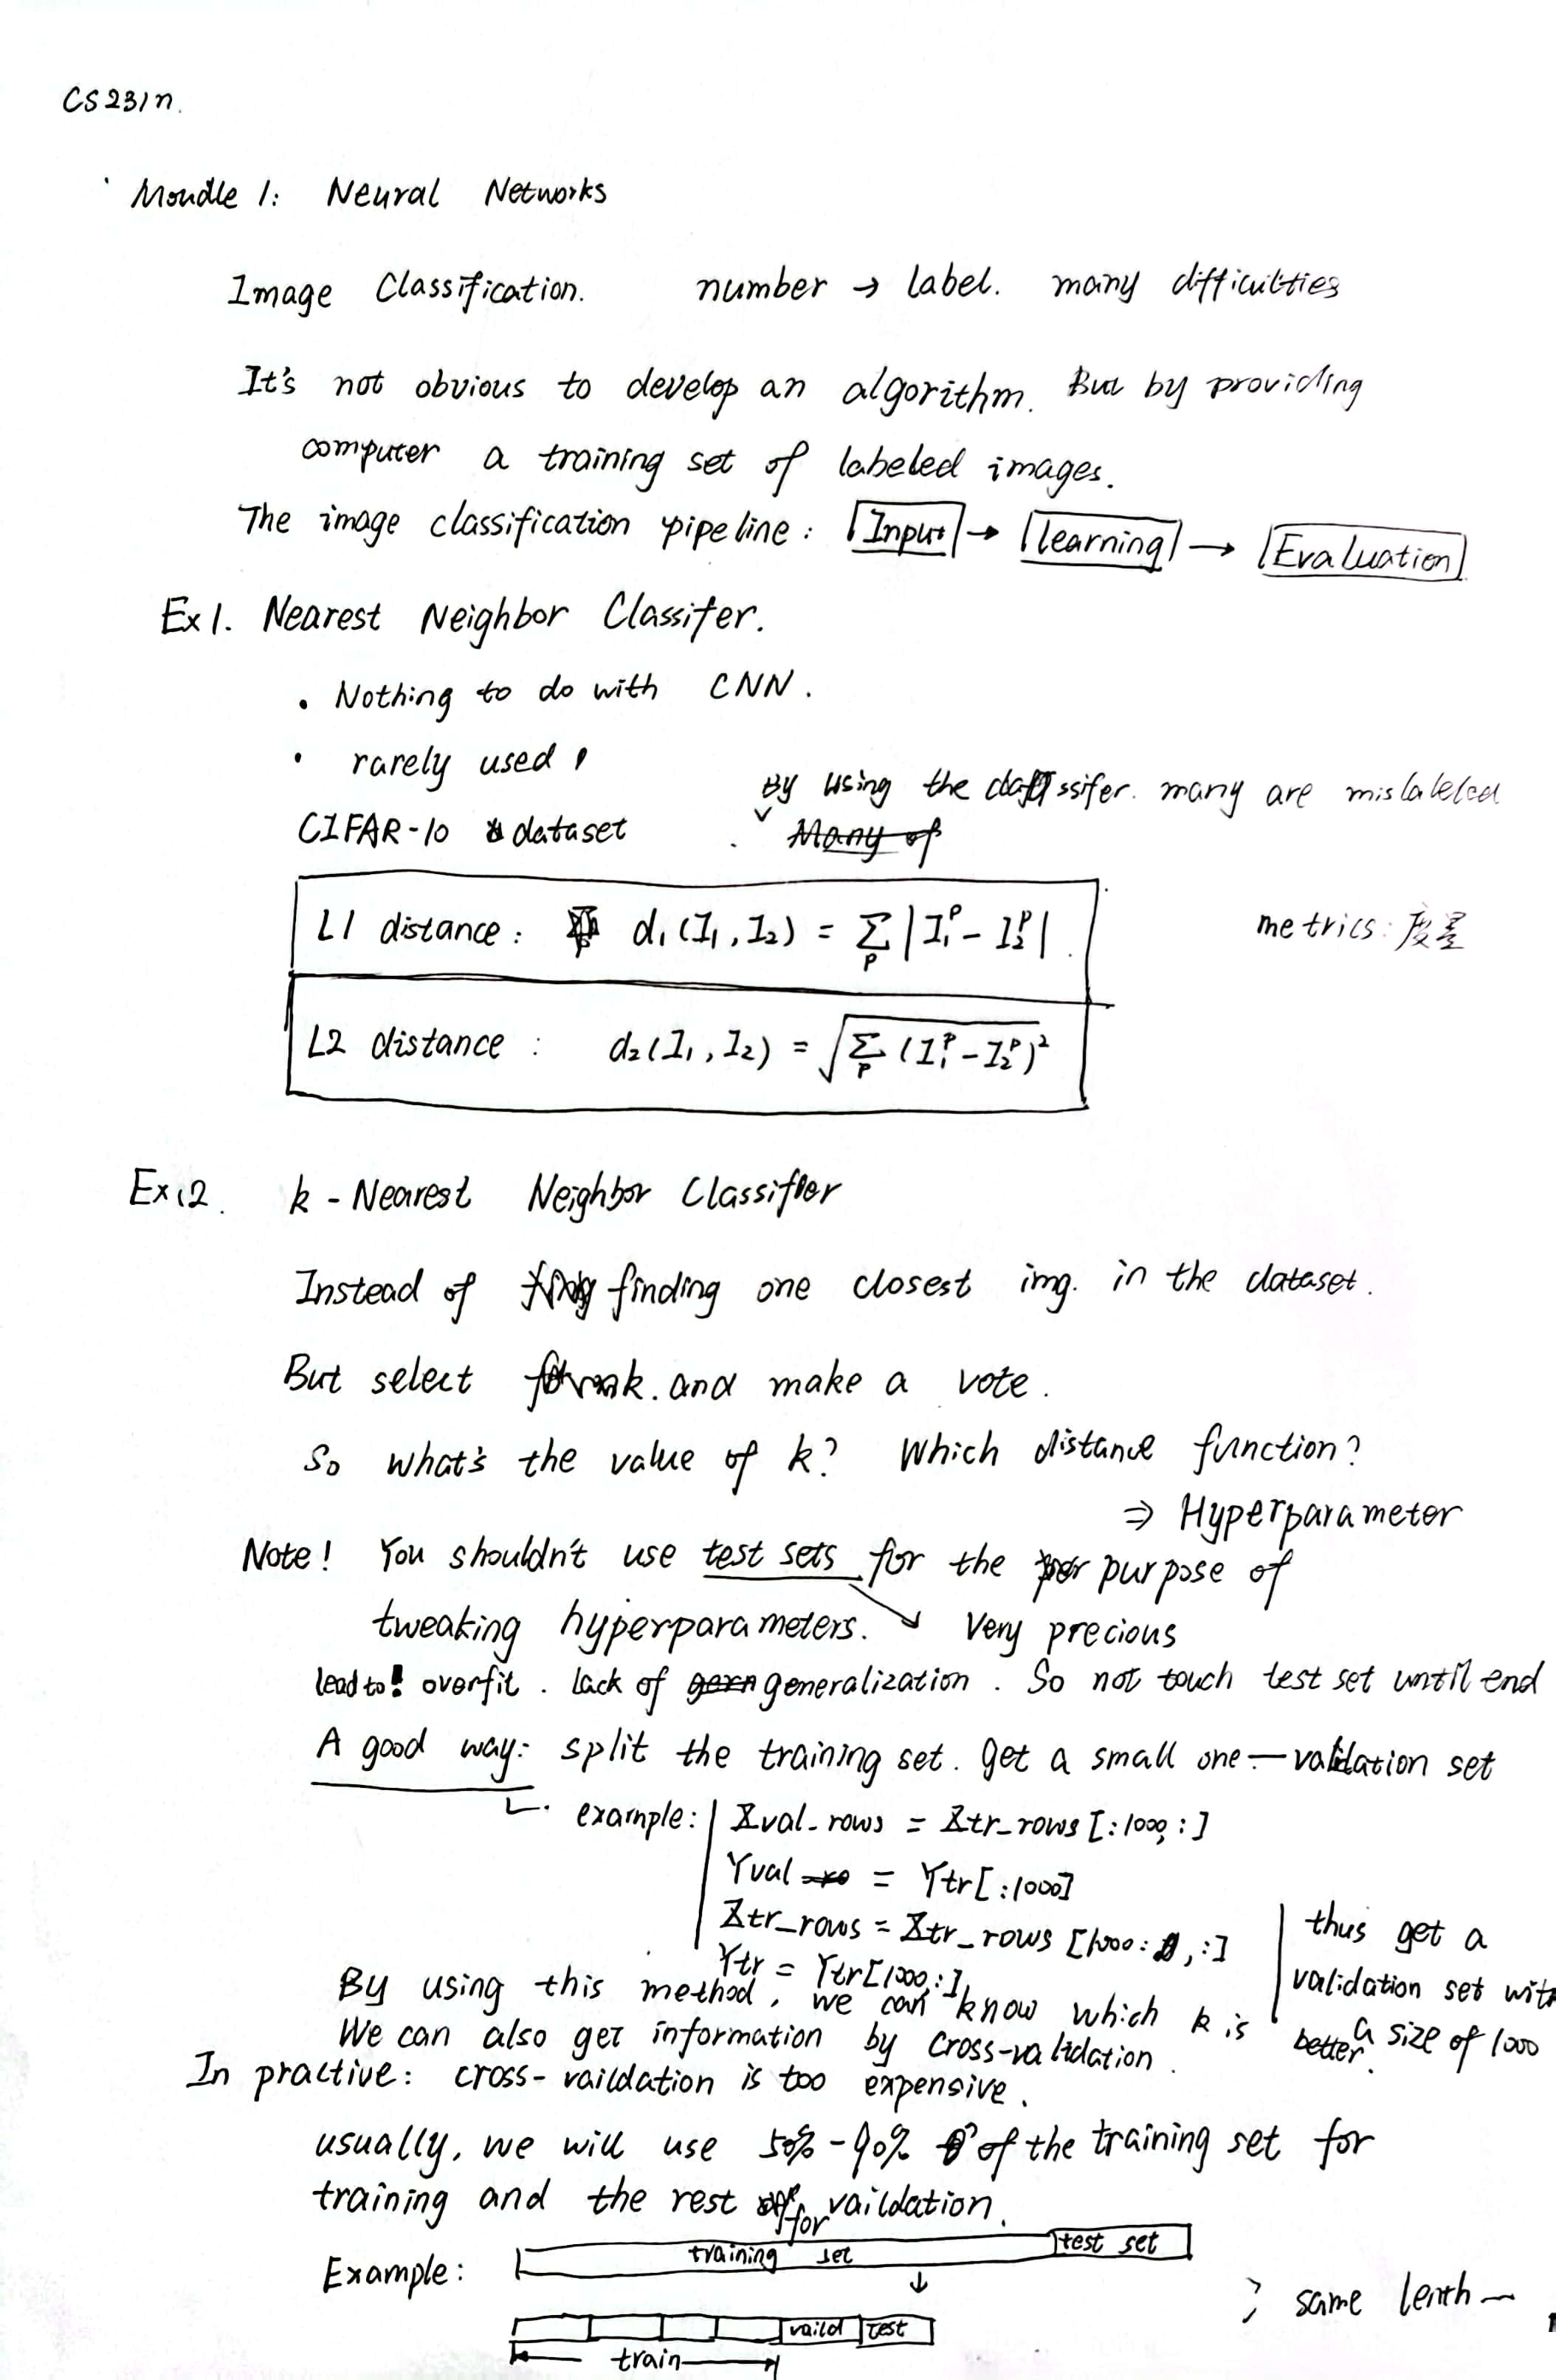 CS231n.
Moudle 1: Neural Networks
Image Classification. number → label. many difficulties
It's not obvious to develop an algorithm. But by providing
computer a training set of labeled images.
The image classification pipeline: Input → learning → Evaluation
Ex1. Nearest Neighbor Classifer.
• Nothing to do with CNN.
• rarely used
By using the classifer. many are mislabeled
CIFAR-10 dataset . Many of
L1 distance: d₁(I₁, I₂) = Σₚ |I₁ᵖ - I₂ᵖ|
metrics: 度量
L2 distance: d₂(I₁, I₂) = √Σₚ (I₁ᵖ - I₂ᵖ)²
Ex.2. k-Nearest Neighbor Classifier
Instead of finding one closest img. in the dataset.
But select k. and make a vote.
So what's the value of k? Which distance function?
⇒ Hyperparameter
Note! You shouldn't use test sets for the purpose of
tweaking hyperparameters. → Very precious
lead to! overfit. lack of generalization. So not touch test set until end
A good way: split the training set. get a small one — validation set
example: Xval_rows = Xtr_rows[:1000, :]
Yval = Ytr[:1000]
Xtr_rows = Xtr_rows[1000:, :]
Ytr = Ytr[1000, :]
thus get a
validation set with
a size of 1000
By using this method, we can know which k is better.
We can also get information by cross-validation.
In practive: cross-vaildation is too expensive.
usually, we will use 50% - 90% of the training set for
training and the rest for vaildation.
Example: training set test set
↓
vaild test
train
same lenth —